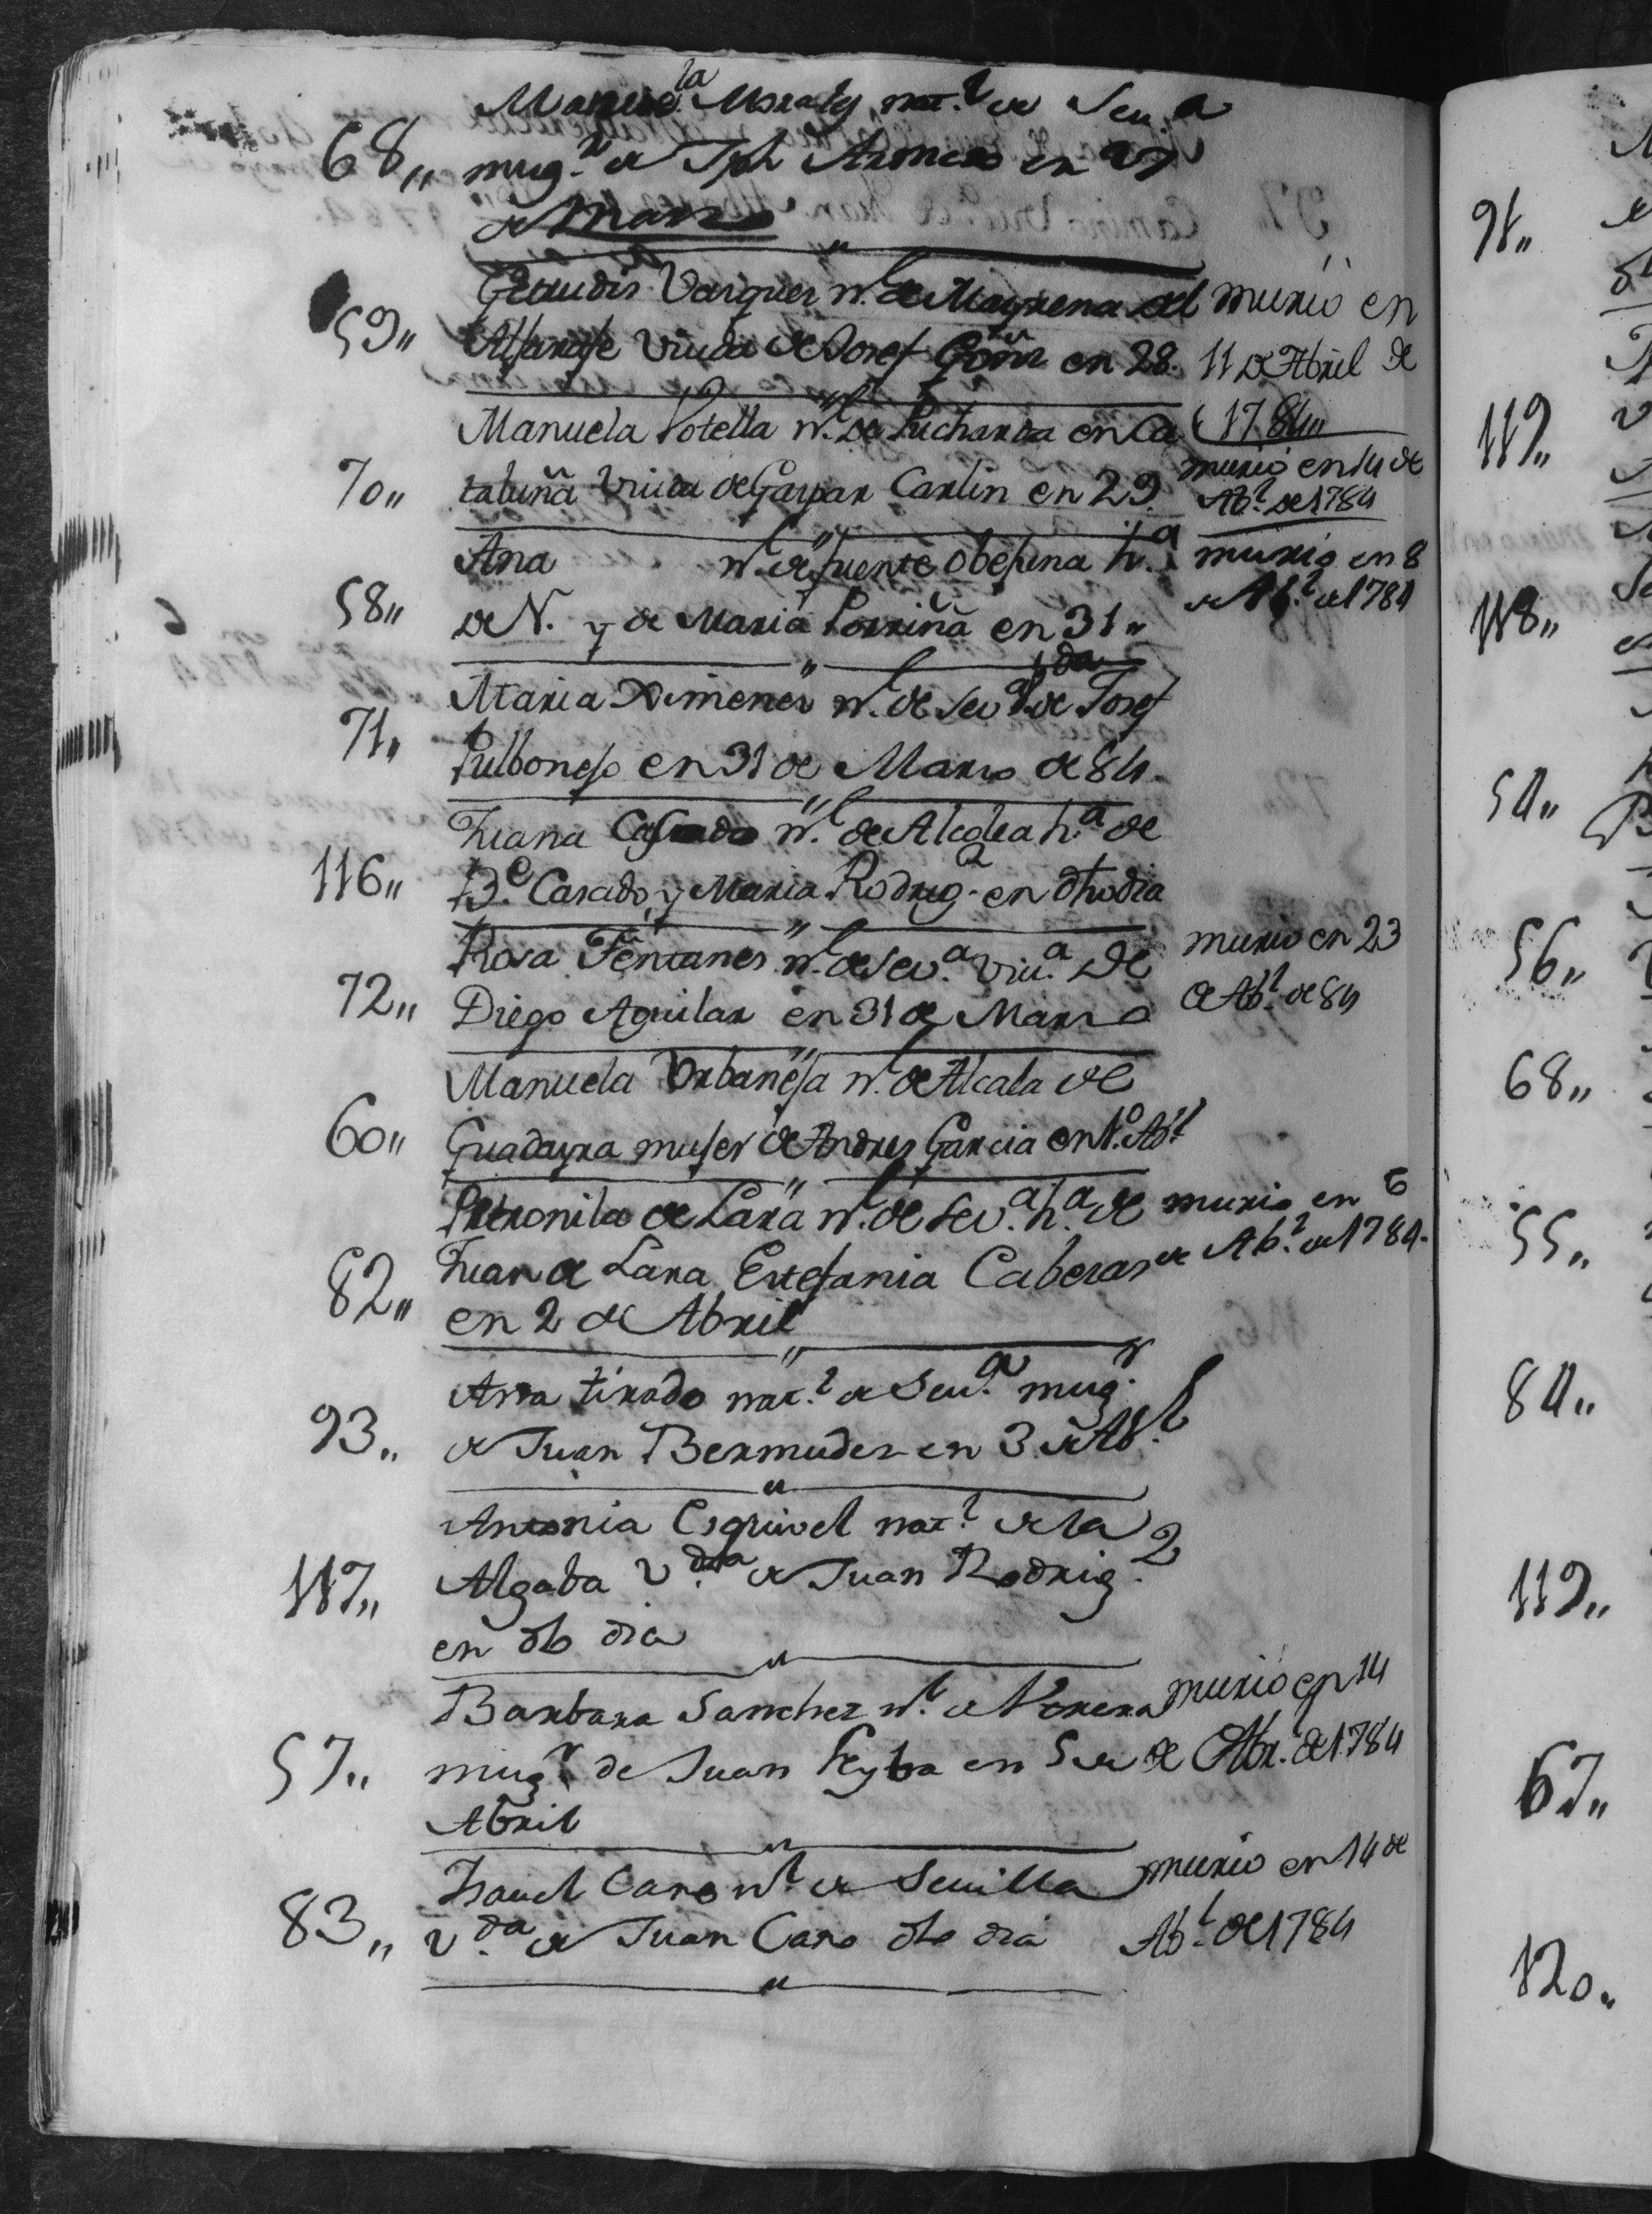 Manuela Morales nat.l de Seu.a
68,, mug.r de Jph Romero en 27
de Marzo
Geaudis Varquez n.l de Mayrena del murio en
59,, Alfarafe Viuda de Josef en 28. 11 de Abril de
1784,,
Manuela Potella n.l de en Ca
70,, taluña Viuda de Gaspar Carlin en 29. murio en 14 de
Ab.l de 1784
Ana n.l de fuente Obefuna h.a murio en 8
58,, de N. y de Maria Porriña en 31,, de Ab.l de 1784
Maria Ximenez n.l de Sev.a v.da de Josef
71,, Pulbonefo en 31 de Marzo de 84.
Juana Casado n.l de Alcolea h.a de
116,, B.e Casado, y Maria Rodrig.z en dho dia
Rosa Fentanes n.l de Sev.a Viu.a De murio en 23
72,, Diego Aguilar en 31 de Marzo de Ab.l de 84
Manuela Urbanefa n.l de Alcala de
60,, Guadayra mujer de Andres Garcia en 1.o Ab.l
Petronila de Lara n.l de Sev.a h.a de murio en 6
82,, Juan de Lara Estefania Cabezas de Ab.l de 1784.
en 2 de Abril
Ana tirado nat.l de Seu.a mug.r
93,, de Juan Bermudez en 3 de Ab.l
Antonia Esquivel nat.l de la
117,, Algaba v.da de Juan Rodrig.z
en dho dia
Barbara Sanchez n.l de murio en 14
57,, mug.r de Juan Leyba en 5 de de Abr.l de 1784
Abril
Isavel Caro n.l de Sevilla murio en 14 de
83,, v.da de Juan Caro dho dia Ab.l de 1784
91,,
119,,
118,,
54,,
56,,
68,,
55,,
84,,
119,,
67,,
120,,